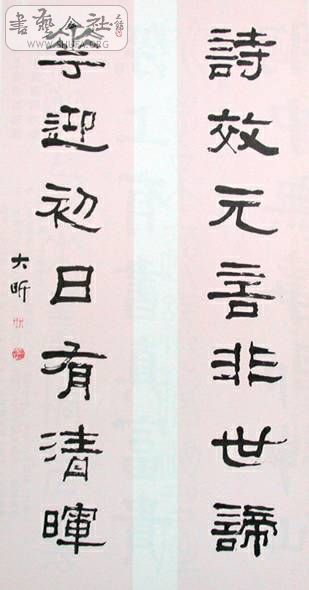 詩效元音非世諦
華迎初日有清暉
大昕
書藝公社
WWW.SHUFA.ORG